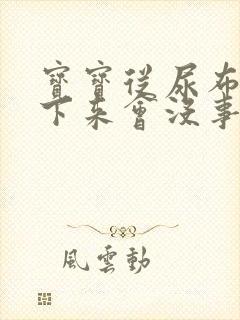 寶寶從尿布
下來會沒事
風雲動